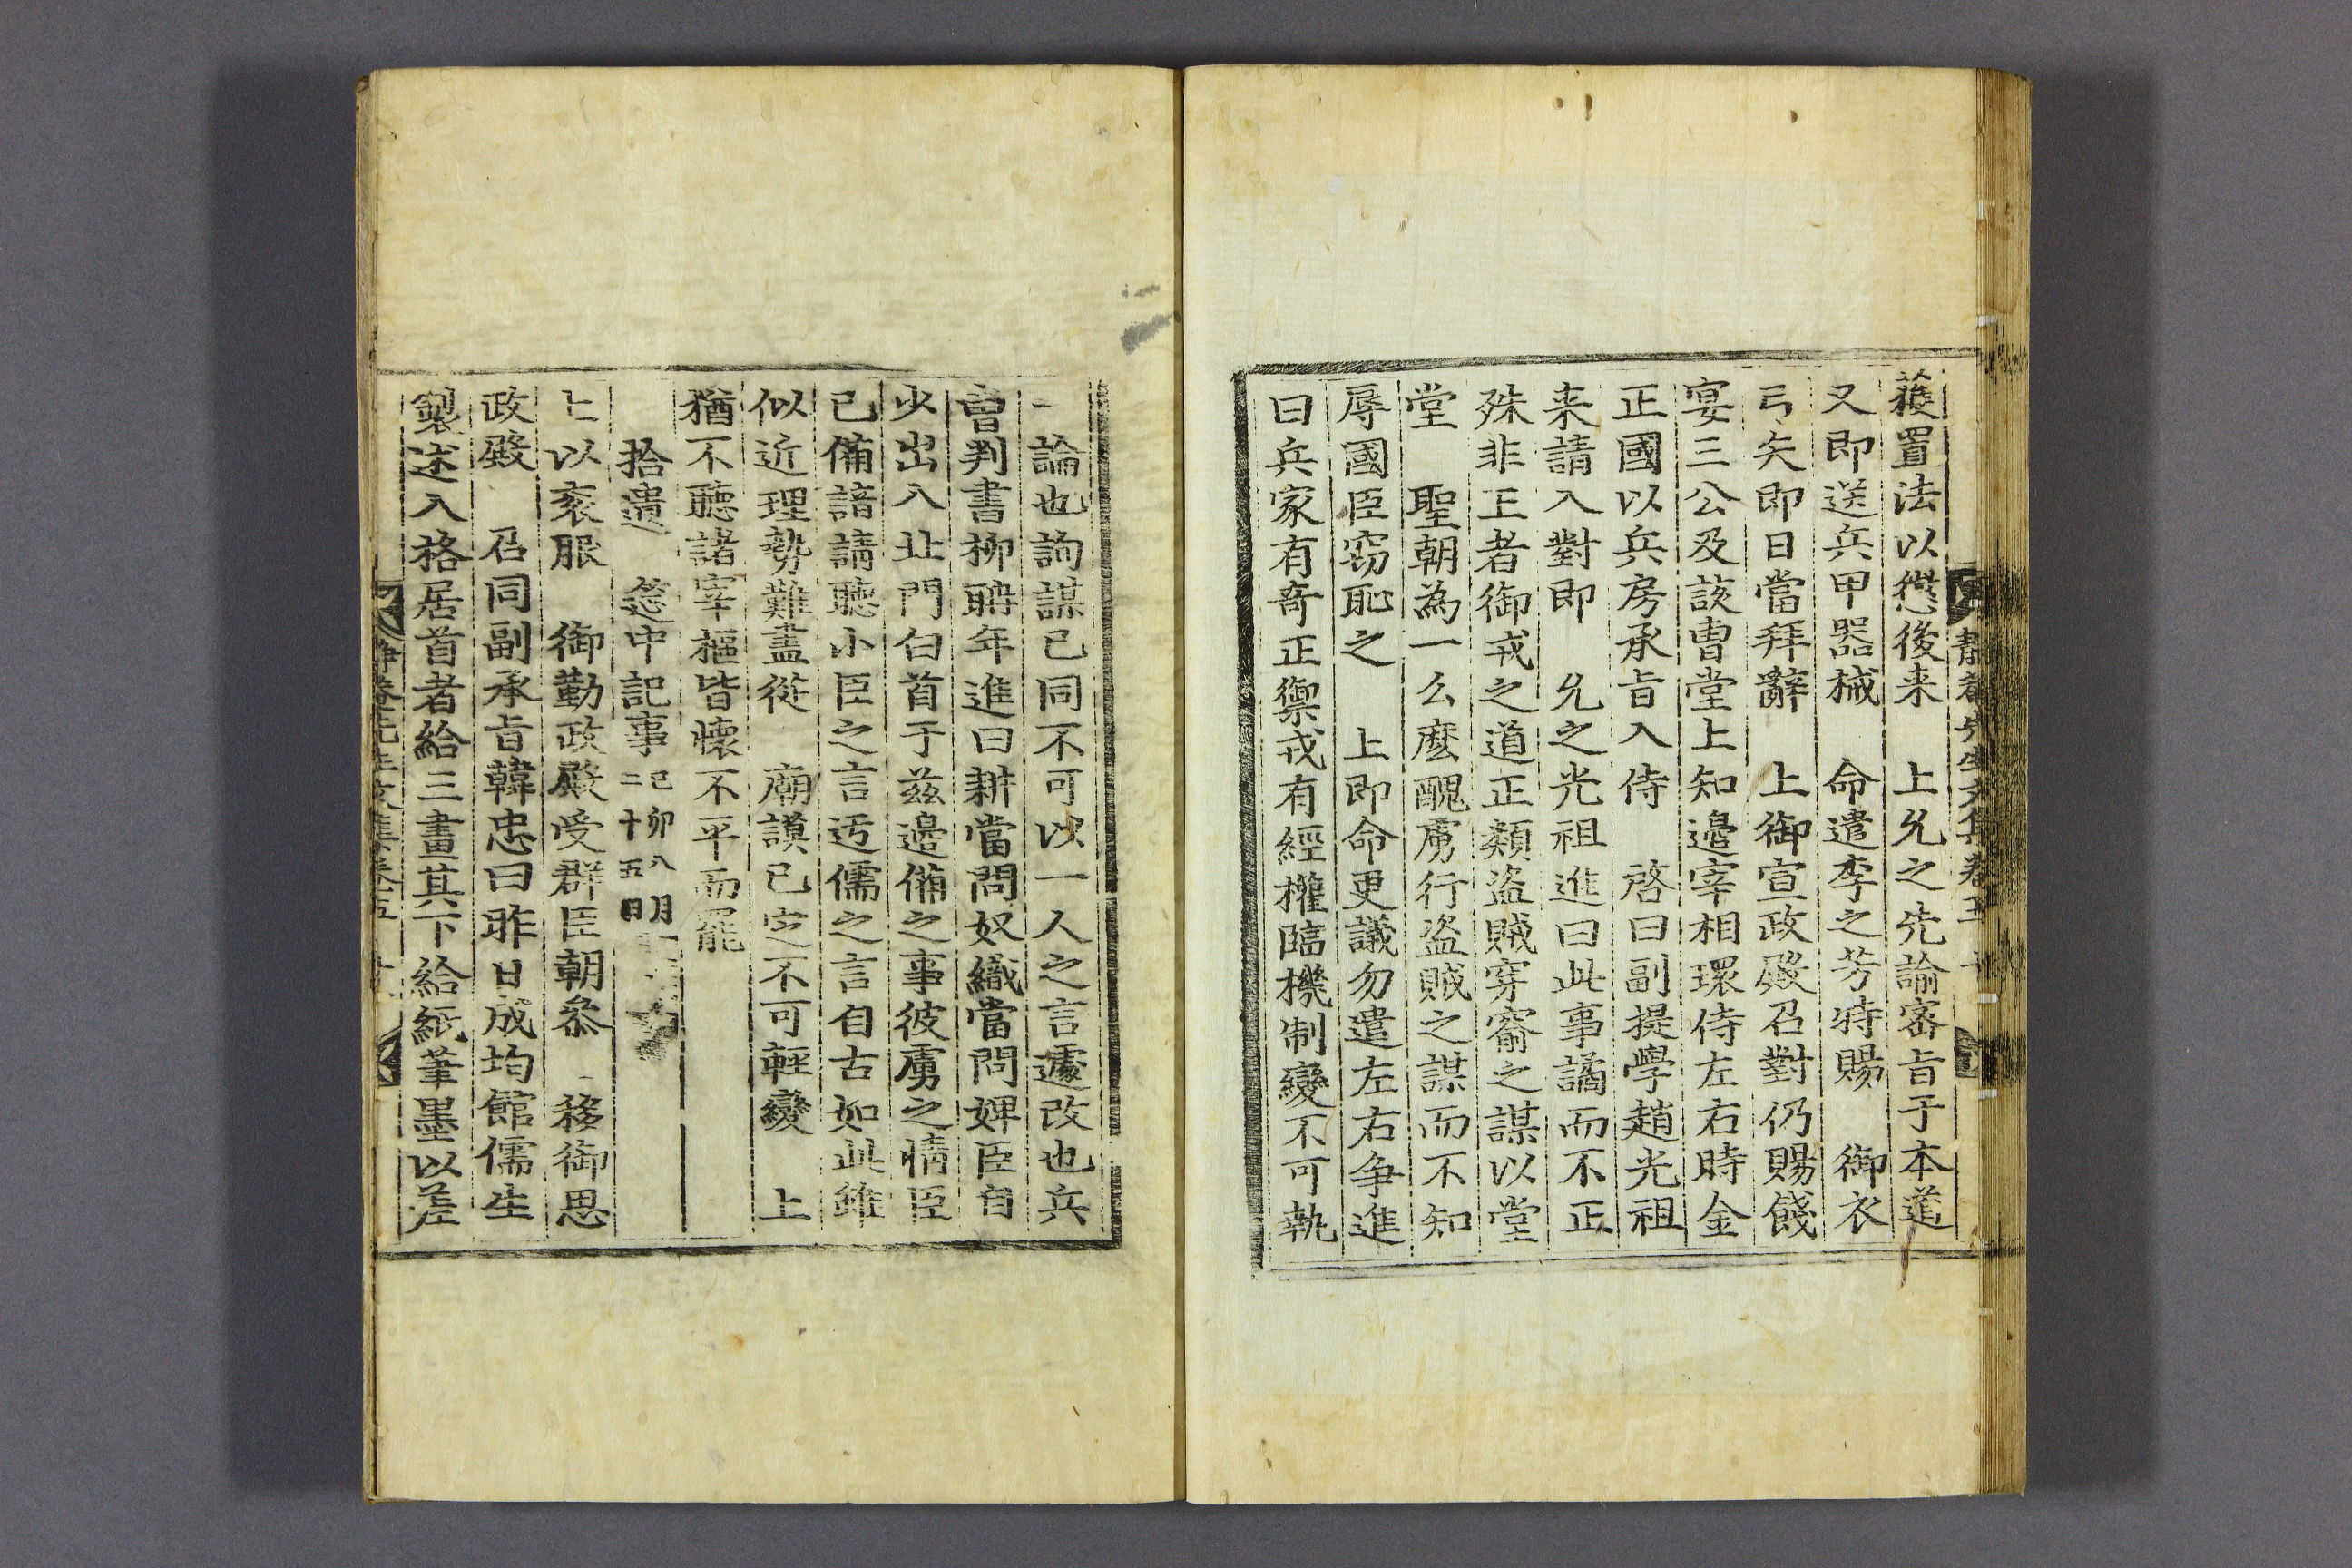 靜菴先生文集卷五
獲置法以懲後来　上允之先諭密旨于本道
又即送兵甲器械　命遣李之芳特賜　御衣
弓矢即日當拜辭　上御宣政殿召對仍賜餞
宴三公及該曺堂上知邉宰相環侍左右時金
正國以兵房承旨入侍　啓曰副提學趙光祖
来請入對即　允之光祖進曰此事譎而不正
殊非王者御戎之道正類盗賊穿窬之謀以堂
堂　聖朝為一么麽醜虜行盗賊之謀而不知
辱國臣窃恥之　上即命更議勿遣左右争進
曰兵家有奇正禦戎有經權臨機制變不可執
一論也詢謀已同不可以一人之言遽改也兵
曺判書柳聃年進曰耕當問奴織當問婢臣自
少出入北門白首于兹邉備之事彼虜之情臣
已備諳請聽小臣之言迃儒之言自古如此雖
似近理勢難盡從　廟謨已定不可輕變　上
猶不聽諸宰樞皆懷不平而罷
拾遺　筵中記事 己卯八月二十五日
上以衮服　御勤政殿受群臣朝叅　移御思
政殿　召同副承旨韓忠曰昨日成均館儒生
製述入格居首者給三畫其下給紙筆墨以差